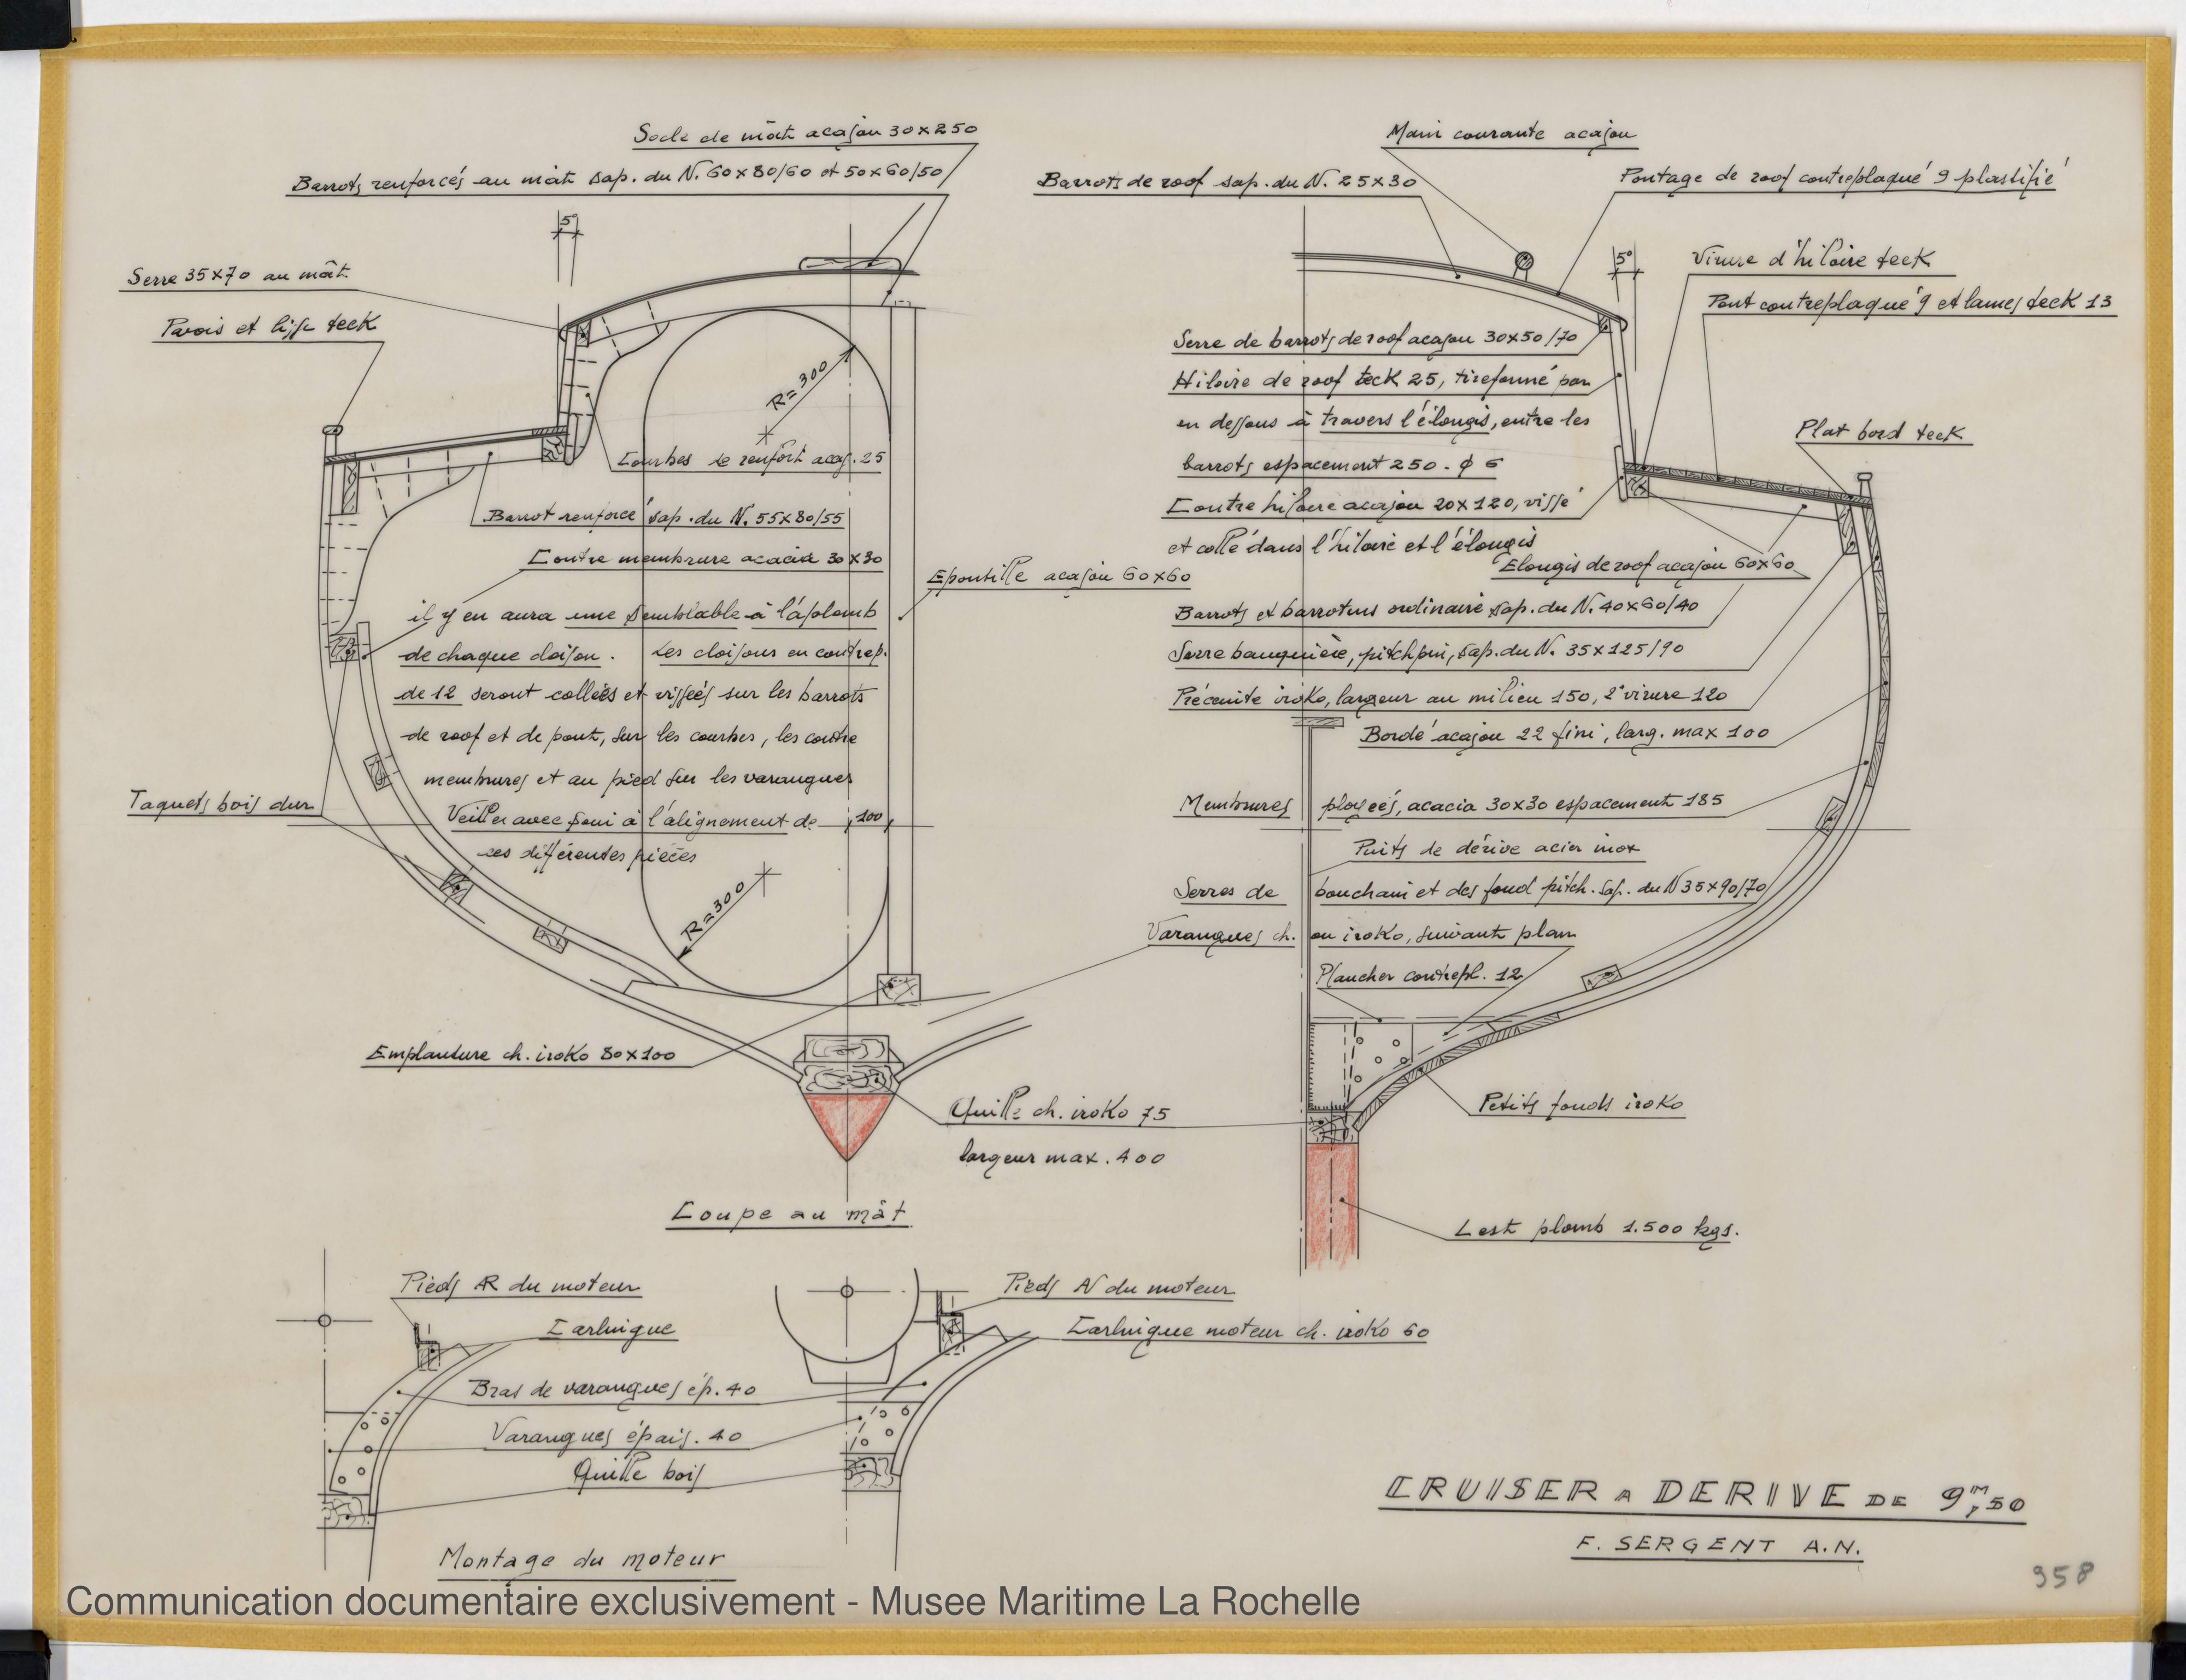 Socle de mât acajou 30x250
Barrots renforcés au mât sap. du N. 60x80/60 et 50x60/50
5°
Serre 35x70 au mât
Pavois et lisse teck
R=300
Courbes de renfort acaj. 25
Barrot renforcé sap. du N. 55x80/55
Contre membrure acacia 30x30
il y en aura une semblable à l'aplomb
de chaque cloison. Les cloisons en contrep.
de 12 seront collées et vissées sur les barrots
de roof et de pont, sur les courbes, les contre
membrures et au pied sur les varangues
Veiller avec soin à l'alignement de
ces différentes pièces
100
Epontille acajou 60x60
Taquets bois dur
R=300
Emplanture ch. iroko 80x100
Quille ch. iroko 75
largeur max. 400
Coupe au mât
Main courante acajou
Barrots de roof sap. du N. 25x30
Pontage de roof contreplaqué 9 plastifié
5°
Virure d'hiloire teck
Pont contreplaqué 9 et lames teck 13
Serre de barrots de roof acajou 30x50/70
Hiloire de roof teck 25, tirefonné par
en dessous à travers l'élongis, entre les
barrots espacement 250. ϕ 6
Contre hiloire acajou 20x120, vissé
et collé dans l'hiloire et l'élongis
Plat bord teck
Elongis de roof acajou 60x60
Barrots et barrotins ordinaire sap. du N. 40x60/40
Serre bauquière, pitchpin, sap. du N. 35x125/90
Préceinte iroko, largeur au milieu 150, 2° virure 120
Bordé acajou 22 fini, larg. max 100
Membrures ployées, acacia 30x30 espacement 185
Puits de dérive acier inox
Serres de bouchain et des fond pitch. Sap. du N 35x90/70
Varangues ch. ou iroko, suivant plan
Plancher contrepl. 12
Petits fonds iroko
Lest plomb 1.500 kgs.
Pieds AR du moteur
Carlingue
Pieds AV du moteur
Carlingue moteur ch. iroko 60
Bras de varangues ép. 40
Varangues épais. 40
Quille bois
Montage du moteur
CRUISER A DERIVE DE 9m,50
F. SERGENT A.N.
358
Communication documentaire exclusivement - Musee Maritime La Rochelle